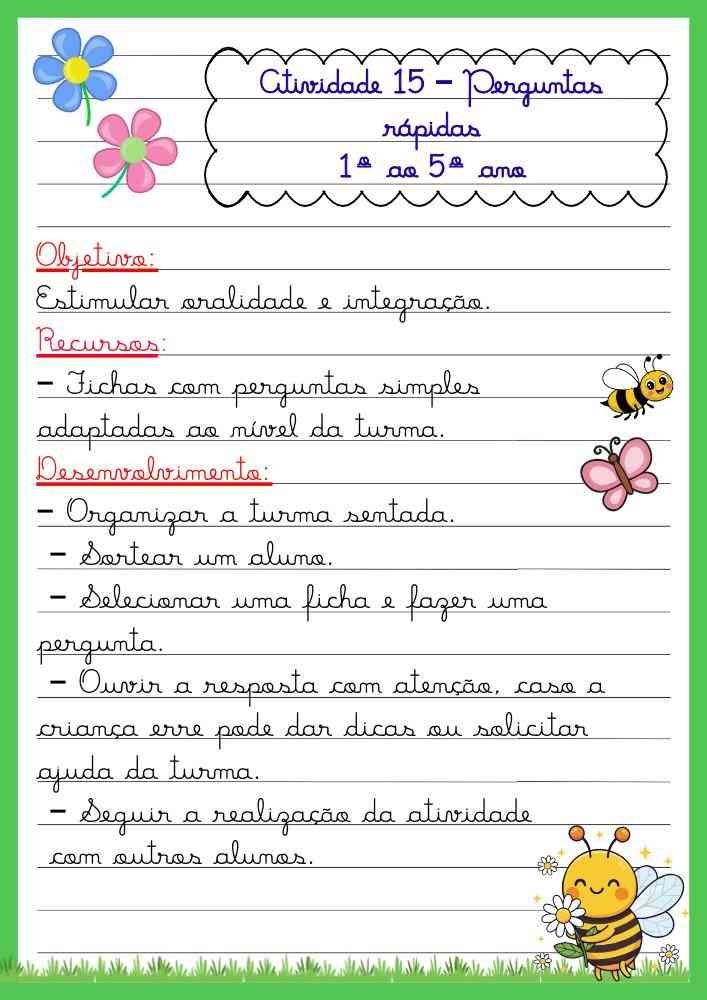 Atividade 15 - Perguntas
rápidas
1º ao 5º ano
Objetivo:
Estimular oralidade e integração.
Recursos:
- Fichas com perguntas simples
adaptadas ao nível da turma.
Desenvolvimento:
- Organizar a turma sentada.
- Sortear um aluno.
- Selecionar uma ficha e fazer uma
pergunta.
- Ouvir a resposta com atenção, caso a
criança erre pode dar dicas ou solicitar
ajuda da turma.
- Seguir a realização da atividade
com outros alunos.